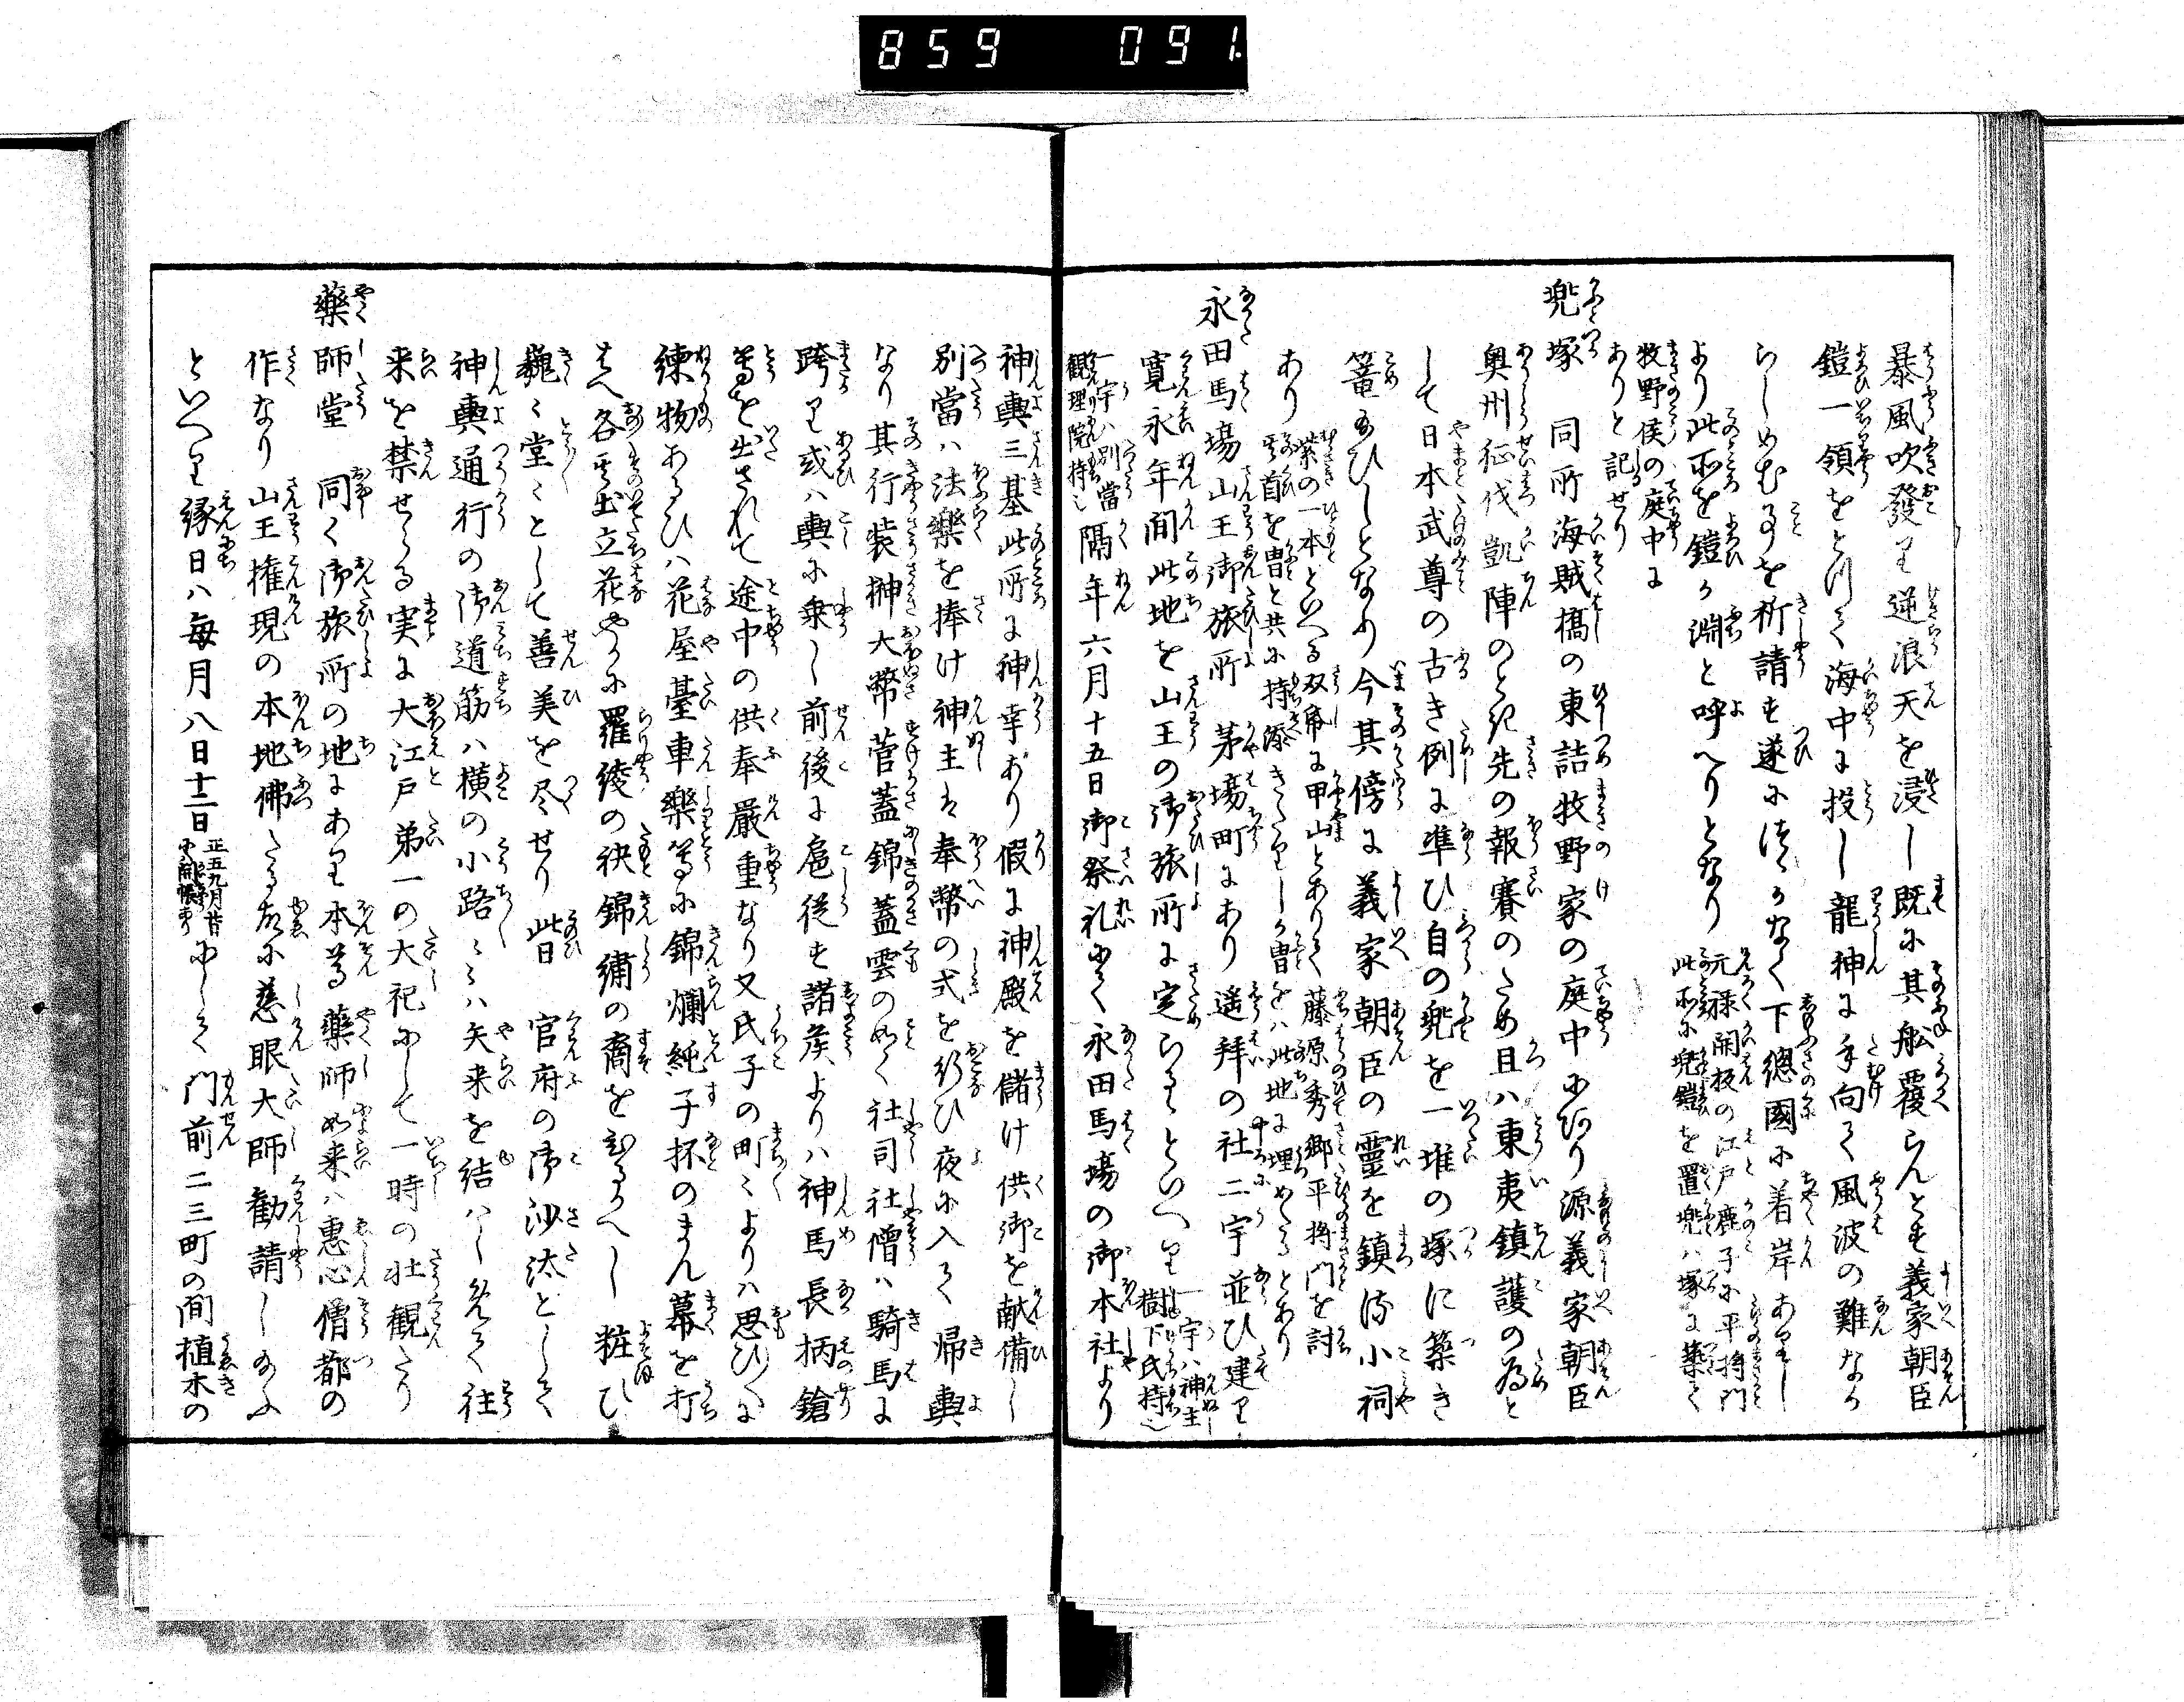 859 091
暴風吹發り逆浪天を浸し既に其舩覆らんとす義家朝臣
鎧一領をとりて海中に投し龍神に手向て風波の難なか
らしめむことを祈請す遂につゝがなく下總國に着岸ありし
より此所を鎧か淵と呼へりとなり
元禄開板の江戸鹿子に平将門
此所に兜鎧を置兜ハ塚に築て
牧野侯の庭中に
ありと記せり
兜塚 同所海賊橋の東詰牧野家の庭中にあり源義家朝臣
奥州征伐凱陣のとき先の報賽のため且ハ東夷鎮護の為と
して日本武尊の古き例に準ひ自の兜を一堆の塚に築き
篭給ひしとなり今其傍に義家朝臣の靈を鎮る小祠
あり
紫の一本といへる双帋に甲山とありて藤原秀郷平将門を討
其首を冑と共に持添きたりしか冑をハ此地に埋めたるとあり
永田馬場山王御旅所 茅場町にあり遥拜の社二宇並ひ建り
寛永年間此地を山王の御旅所に定らるといへり
一宇ハ神主
樹下氏持
一宇ハ別當
觀理院持
隔年六月十五日御祭礼にて永田馬場の御本社より
神輿三基此所に神幸あり假に神殿を儲け供御を献備し
別當ハ法樂を捧け神主ハ奉幣の式を行ひ夜に入て帰輿
なり其行装榊大幣菅蓋錦蓋雲の如く社司社僧ハ騎馬に
跨り或ハ輿に乗し前後に扈従す諸侯よりハ神馬長柄鎗
等を出されて途中の供奉嚴重なり又氏子の町々よりハ思ひ〳〵に
練物あるひハ花屋臺車樂等に錦爛純子抔のまん幕を打
はへ各其出立花やかに羅綾の袂錦繍の裔をひるかへし粧ひ
巍々堂々として善美を尽せり此日 官府の御沙汰として
神輿通行の御道筋ハ横の小路〳〵ハ矢来を結ハしめて往
来を禁せらる実に大江戸第一の大祀にして一時の壮觀たり
藥師堂 同く御旅所の地にあり本尊藥師如来ハ惠心僧都の
作なり山王権現の本地佛たる故に慈眼大師勧請し給ふ
といへり縁日ハ毎月八日十二日
正五九月廿
日開帳あり
にして門前二三町の間植木の